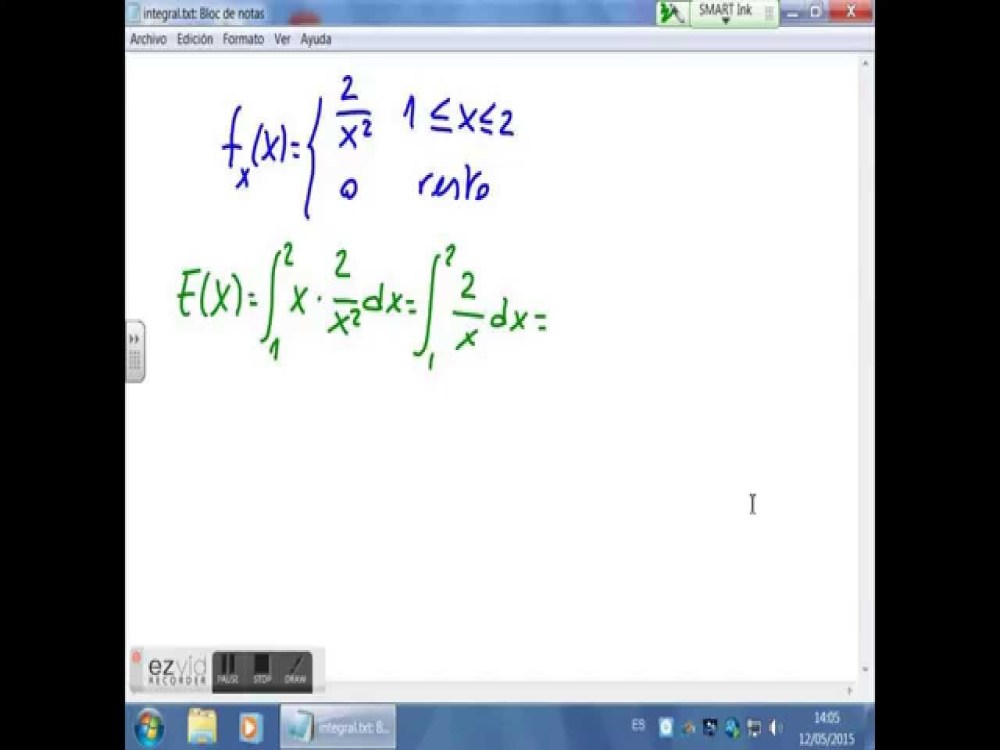 integral.txt: Bloc de notas
SMART Ink
Archivo Edición Formato Ver Ayuda
f_x(x)= { 2/x² 1 ≤ x ≤ 2
0 resto
E(X)= ∫₁² x · 2/x² dx = ∫₁² 2/x dx =
ezvid
RECORDER
PAUSE STOP DRAW
integral.txt: B...
ES
14:05
12/05/2015